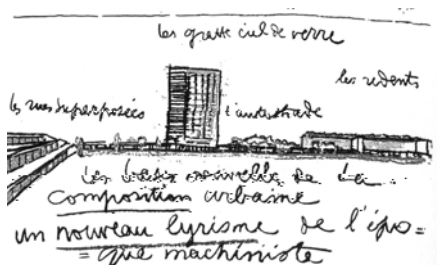 les gratte ciel de verre
les redents
les rues superposées l'autostrade
Les bases nouvelles de la
composition urbaine
un nouveau lyrisme de l'épo=
=que machiniste